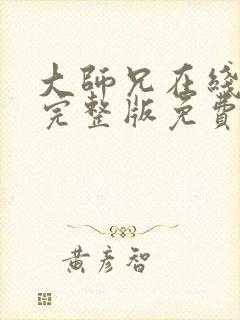 大師兄在綫
完整版免費
黃彥智